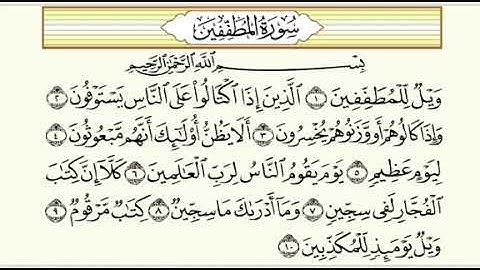 سُورَةُ المُطَفِّفِينَ
بِسْمِ اللَّهِ الرَّحْمَٰنِ الرَّحِيمِ
وَيْلٌ لِّلْمُطَفِّفِينَ ١ ٱلَّذِينَ إِذَا ٱكْتَالُوا۟ عَلَى ٱلنَّاسِ يَسْتَوْفُونَ ٢
وَإِذَا كَالُوهُمْ أَو وَّزَنُوهُمْ يُخْسِرُونَ ٣ أَلَا يَظُنُّ أُو۟لَٰٓئِكَ أَنَّهُم مَّبْعُوثُونَ ٤
لِيَوْمٍ عَظِيمٍ ٥ يَوْمَ يَقُومُ ٱلنَّاسُ لِرَبِّ ٱلْعَٰلَمِينَ ٦ كَلَّآ إِنَّ كِتَٰبَ
ٱلْفُجَّارِ لَفِى سِجِّينٍ ٧ وَمَآ أَدْرَىٰكَ مَا سِجِّينٌ ٨ كِتَٰبٌ مَّرْقُومٌ ٩
وَيْلٌ يَوْمَئِذٍ لِّلْمُكَذِّبِينَ ١٠